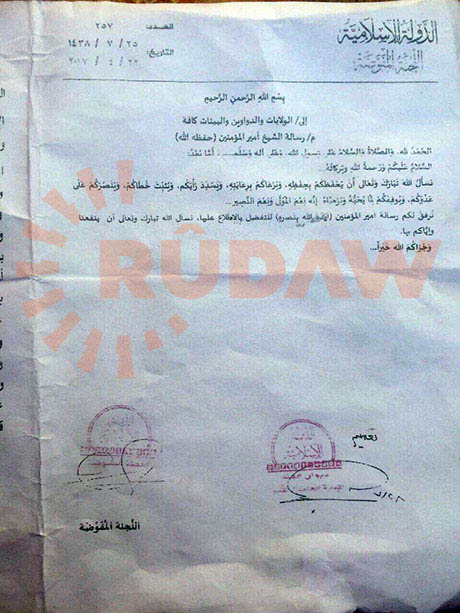 الدولة الإسلامية
اللجنة المفوضة
العدد: ٢٥٧
التاريخ: ٢٥ / ٧ / ١٤٣٨
٢٢ / ٤ / ٢٠١٧
بِسْمِ اللهِ الرَّحمنِ الرَّحيمِ
إلى/ الولايات والدواوين والهيئات كافة
م/ رسالة الشيخ أمير المؤمنين (حفظه الله)
الحَمْدُ لله، وَالصَّلاةُ وَالسَّلامُ على رسولِ اللهِ، وعلى آلهِ وسلم... أمّا بَعْدُ:
السَّلامُ عَلَيْكُم وَرَحمةُ اللهِ وبَرَكاتُهُ...
نَسألُ اللهَ تبَارَكَ وتَعَالَى أنْ يَحْفَظَكُم بِحِفْظِهِ، وَيَرْعَاكُم بِرِعَايَتِهِ، وَيُسَدِّدَ رَأيَكُم، ويُثَبِّتَ خُطاكُم، وَيَنْصُرَكُم عَلَى
عَدُوِّكُم، وَيُوفِقَكُم لِمَا يُحِبُّهُ وَيَرْضَاهُ إنَّه نِعْمَ المَوْلَى وَنِعْمَ النَّصير...
نرفق لكم رسالة امير المؤمنين (الله بنصره) للتفضل بالاطلاع عليها، نسأل الله تبارك وتعالى أن ينفعنا
وإيّاكم بها.
وَجَزَاكُمُ الله خَيراً...
RÛDAW
تعميم
الدولة
الإسلامية
ديوان الجند
اللجنة المُفَوّضة